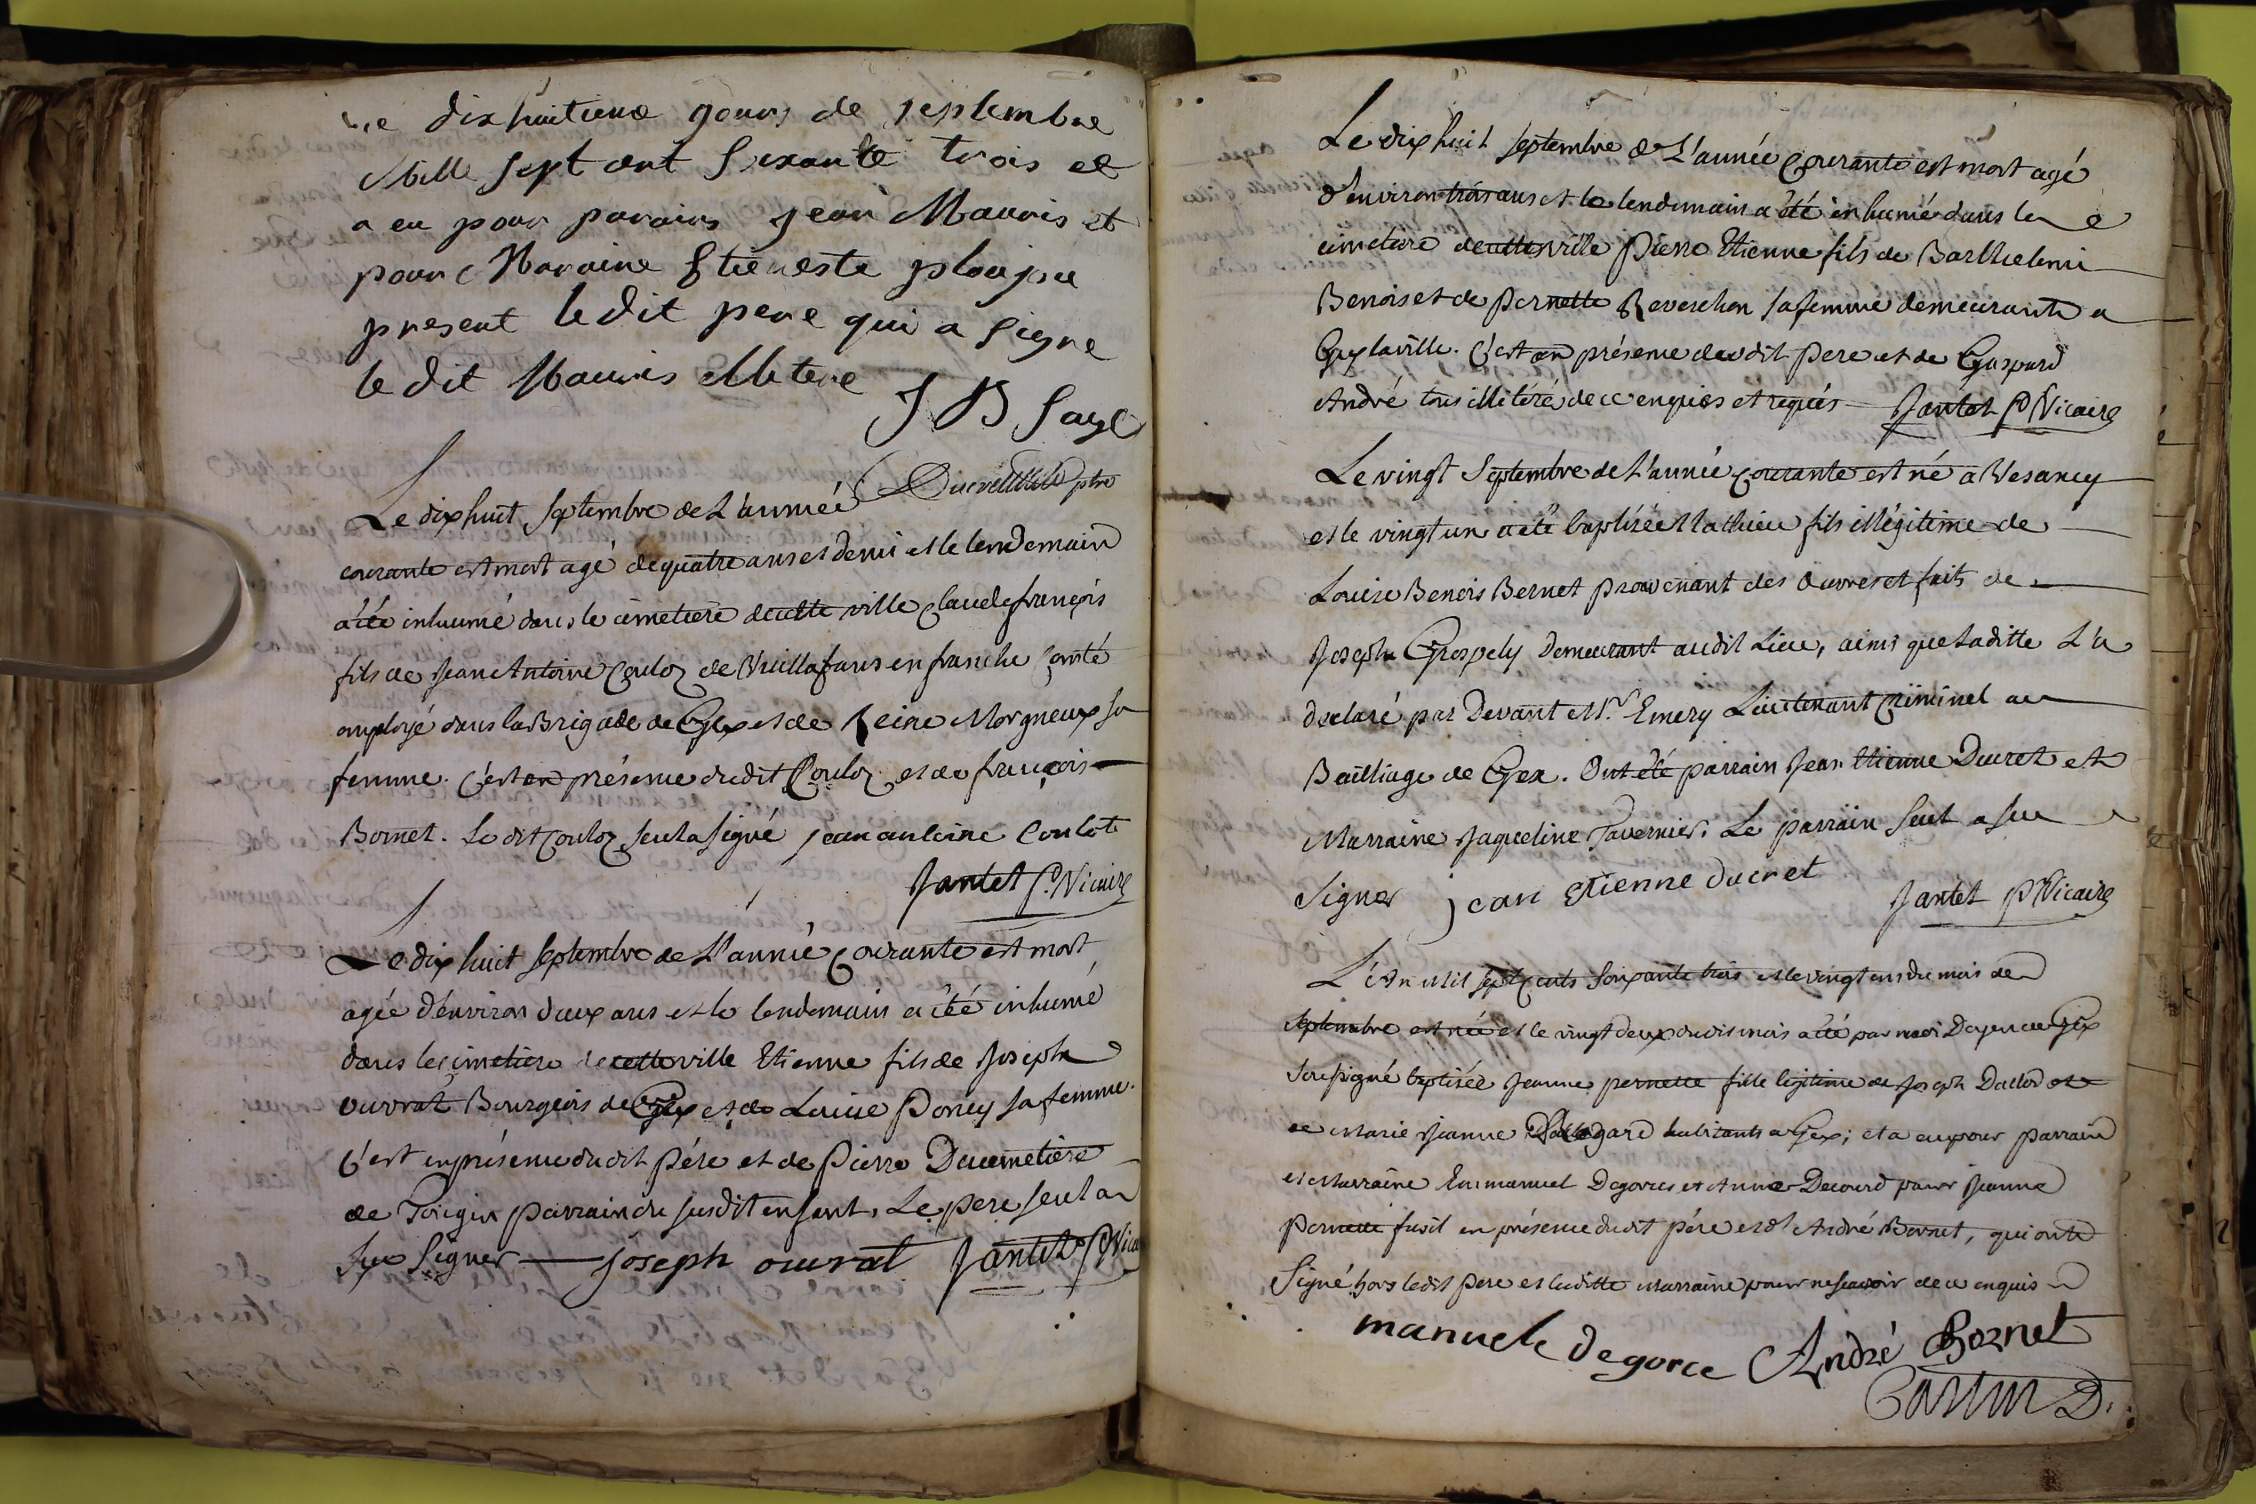 Le dixhuitieme gours de septembre
Mille sept cent Sixante trois et
a eu pour parains jean Mauris et
pour Maraine Etieneste
present ledit pere qui a signe
le dit Mauris illitere J B Saye
ptre
Le dix huit Septembre de L'année
courante est mort agé de quatre ans et demi et le lendemain
a été inhumé dans le cimetiere de cette ville Claude françois
fils de Jean Antoine Couloz de Vuillafans en franche Comté
employé dans la Brigade de Gex et de Reine Morgneux sa
femme. C'est en présence dudit Couloz et de françois
Bornet. Le dit Couloz seul a signé jean antoine Coulot
Jantet P. Vicaire
Le dix huit Septembre de L'année Courante est mort
agée d'environ deux ans et le lendemain a été inhumé
dans le cimetiere de cette ville Etienne fils de Joseph
ouvrat Bourgeois de Gex et de Louise Poncy sa femme.
C'est en présence dudit Pére et de Pierre Ducimetiere
de Tougin parrain du susdit enfant. Le pere seul a
sçu Signer joseph ouvrat Jantet P Vica
Le dix huit Septembre de L'année Courante est mort agé
d'environ trois ans et le lendemain a été inhumé dans le
cimetiere de cette ville Pierre Etienne fils de Barthelemi
Benois et de Pernette Reverchon sa femme demeurante a
Gex la ville. C'est en présence du dit Pere et de Gaspard
André tous illitéré de ce enquis et requis Jantet P Vicaire
Le vingt Septembre de L'année Courante est né a Vesancy
et le vingt un a été baptisée Mathieu fils illégitime de
Louise Benois Bernet provenant des Œuvres et faits de
Joseph Grospely Demeurant audit Lieu, ainsi que Laditte L'a
declaré par Devant Mr. Emery Lieutenant Criminel au
Bailliage de Gex. Ont été parrain Jean Etienne Ducret et
Marraine Jaqueline Tavernier. Le parrain Seul a sçu
Signer jean Etienne ducret Jantet P Vicaire
L'An Mil sept cents soixante trois et le vingt un du mois de
Septembre est née et le vingt deux dudit mois a été par moi Doyen de Gex
Soussigné baptisée Jeanne pernette fille légitime de Joseph Dallod et
de Marie Jeanne habitants a Gex; et a eu pour parrain
et Marraine Emmanuel Degorces et Anne Decourd pour Jeanne
Pernette fusil en présence dudit pére et d'André Bornet, qui ont
Signé hors ledit Pere et laditte Marraine pour ne sçavoir de ce enquis
manuele degorce André Bornet